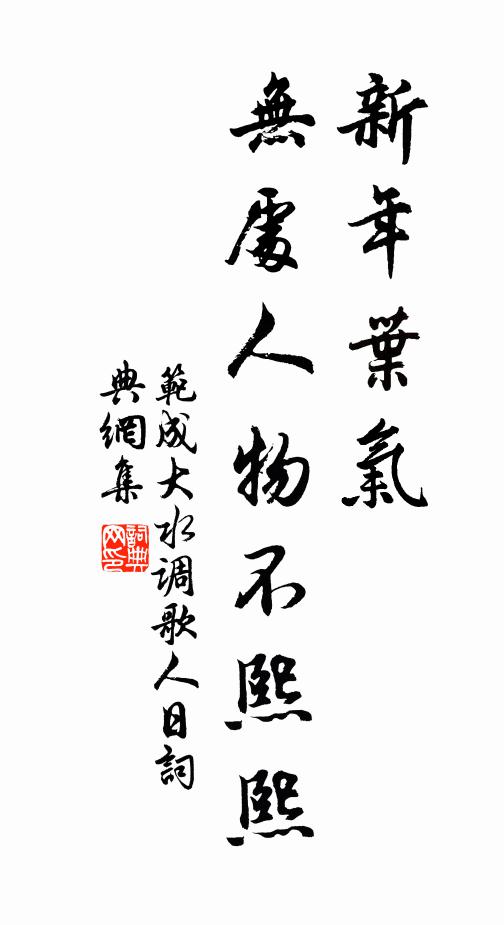 新年葉氣
無處人物不熙熙
範成大水调歌人日詞
典網集
詞典网印